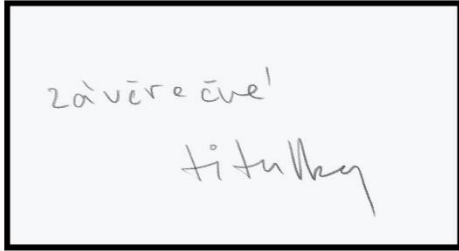 závěrečné
titulky